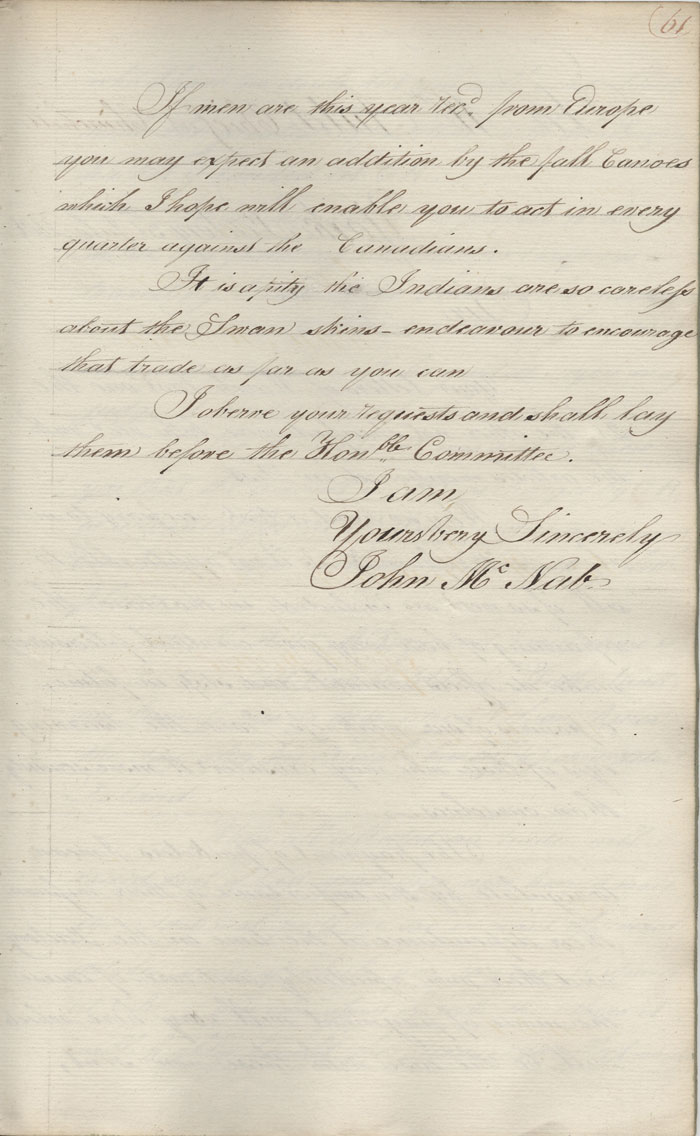 61
If men are this year recd. from Europe
you may expect an addition by the fall Canoes
which I hope will enable you to act in every
quarter against the Canadians.
It is a pity the Indians are so careless
about the Swan skins - endeavour to encourage
that trade as far as you can
I oberve your requests and shall lay
them before the Honble Committee.
I am
Yours very Sincerely
John Mc Nab